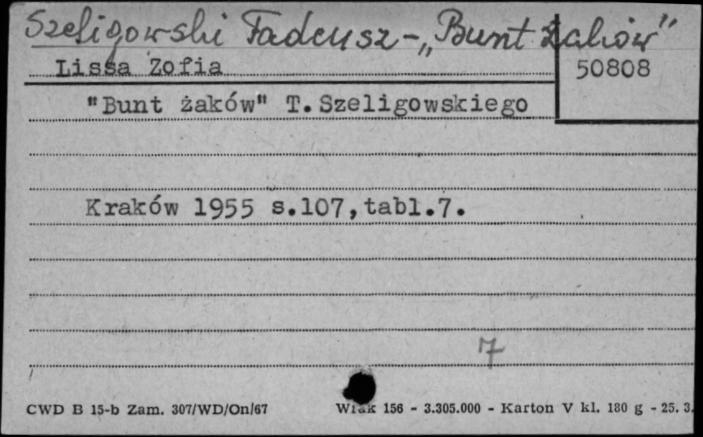 Szeligowski Tadeusz - „Bunt żaków”
Lissa Zofia
50808
"Bunt żaków" T.Szeligowskiego
Kraków 1955 s.107,tabl.7.
7
CWD B 15-b Zam. 307/WD/On/67 Wiak 156 - 3.305.000 - Karton V kl. 180 g - 25. 3.